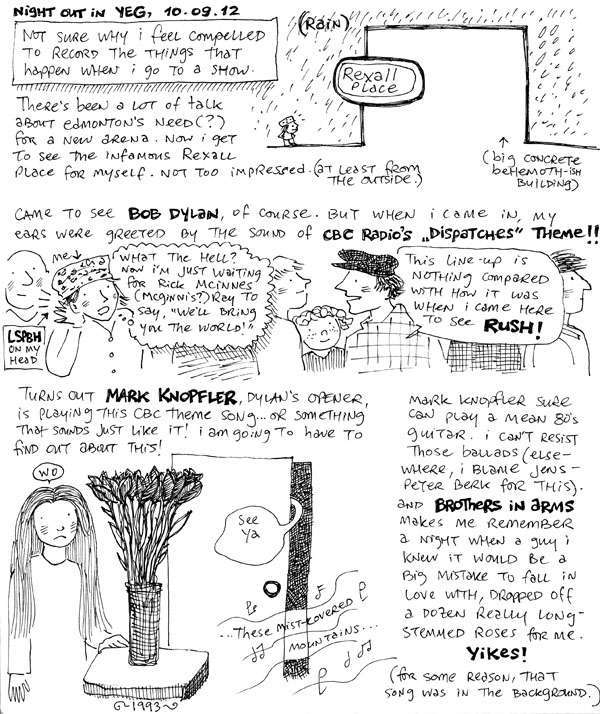 Night out in YEG, 10.09.12
Not sure why i feel compelled
to record the things that
happen when i go to a show.
(Rain)
Rexall
Place
There's been a lot of talk
about Edmonton's need(?)
for a new arena. Now i get
to see the infamous Rexall
Place for myself. Not too impressed. (at least from
the outside.)
↑
(big concrete
behemoth-ish
building)
Came to see BOB DYLAN, of course. But when i came in, my
ears were greeted by the sound of CBC Radio's „Dispatches" Theme!!
me→
What the hell?
Now i'm just waiting
for Rick McInnes
(McGinnis?) Ray to
say, "We'll bring
you the world!"
LSPBH
on my
head
This line-up is
nothing compared
with how it was
when i came here
to see RUSH!
Turns out MARK KNOPFLER, Dylan's opener,
is playing this CBC theme song... or something
that sounds just like it! i am going to have to
find out about this!
Mark Knopfler sure
can play a mean 80's
guitar. i can't resist
those ballads (else-
where, i blame Jens-
Peter Berk for this).
and BROTHERS IN ARMS
makes me remember
a night when a guy i
knew it would be a
big mistake to fall in
love with, dropped off
a dozen really long-
stemmed roses for me.
Yikes!
(for some reason, that
song was in the background.)
WD
See
ya
...These mist-covered
mountains...
~1993~